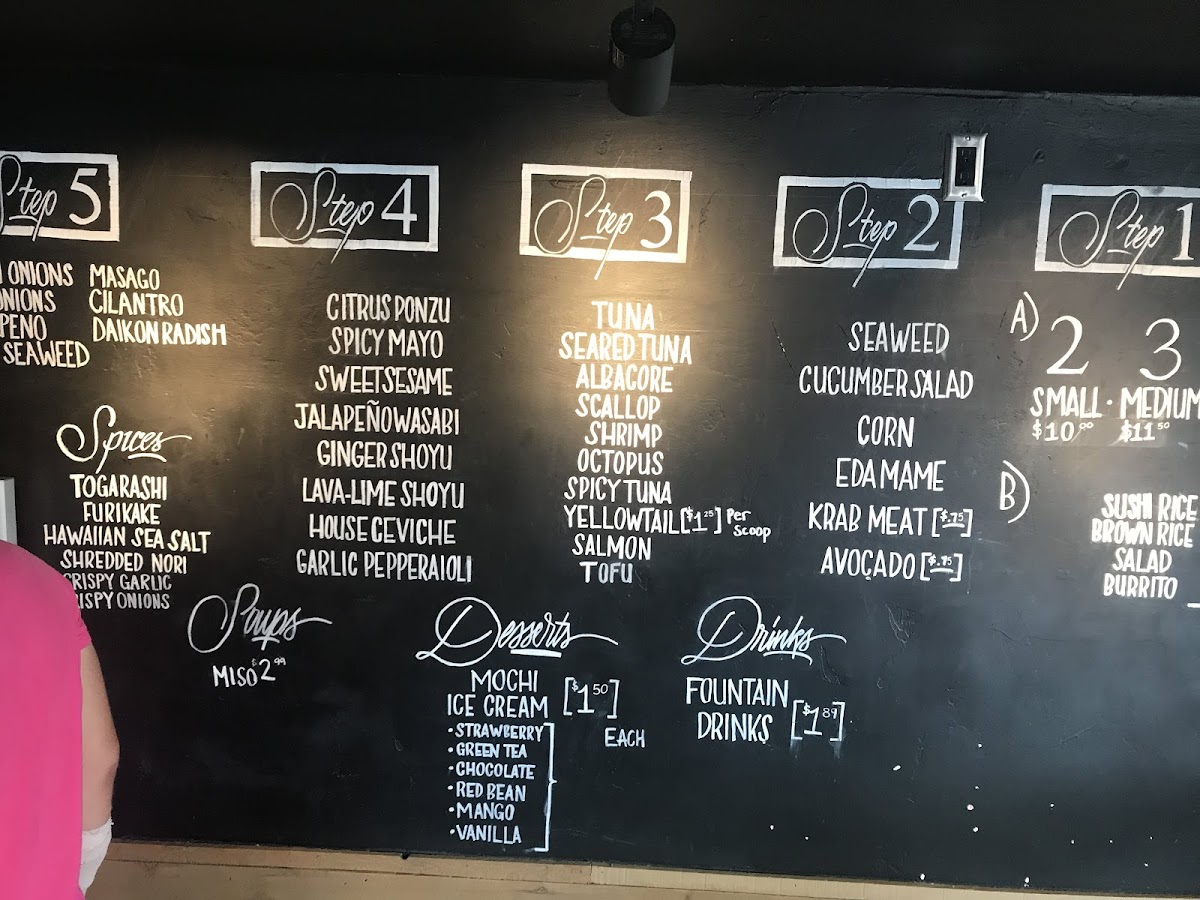 Step 5
ONIONS MASAGO
ONIONS CILANTRO
PENO DAIKON RADISH
SEAWEED
Spices
TOGARASHI
FURIKAKE
HAWAIIAN SEA SALT
SHREDDED NORI
CRISPY GARLIC
ISPY ONIONS
Soups
MISO $2.99
Step 4
CITRUS PONZU
SPICY MAYO
SWEET SESAME
JALAPEÑO WASABI
GINGER SHOYU
LAVA-LIME SHOYU
HOUSE CEVICHE
GARLIC PEPPER AIOLI
Step 3
TUNA
SEARED TUNA
ALBACORE
SCALLOP
SHRIMP
OCTOPUS
SPICY TUNA
YELLOWTAIL [$1.25] Per Scoop
SALMON
TOFU
Desserts
MOCHI
ICE CREAM [$1.50]
EACH
• STRAWBERRY
• GREEN TEA
• CHOCOLATE
• RED BEAN
• MANGO
• VANILLA
Step 2
SEAWEED
CUCUMBER SALAD
CORN
EDAMAME
KRAB MEAT [$.75]
AVOÇADO [$.95]
Drinks
FOUNTAIN
DRINKS [$1.89]
Step 1
A) 2 3
SMALL · MEDIUM
$10.00 $11.50
B)
SUSHI RICE
BROWN RICE
SALAD
BURRITO